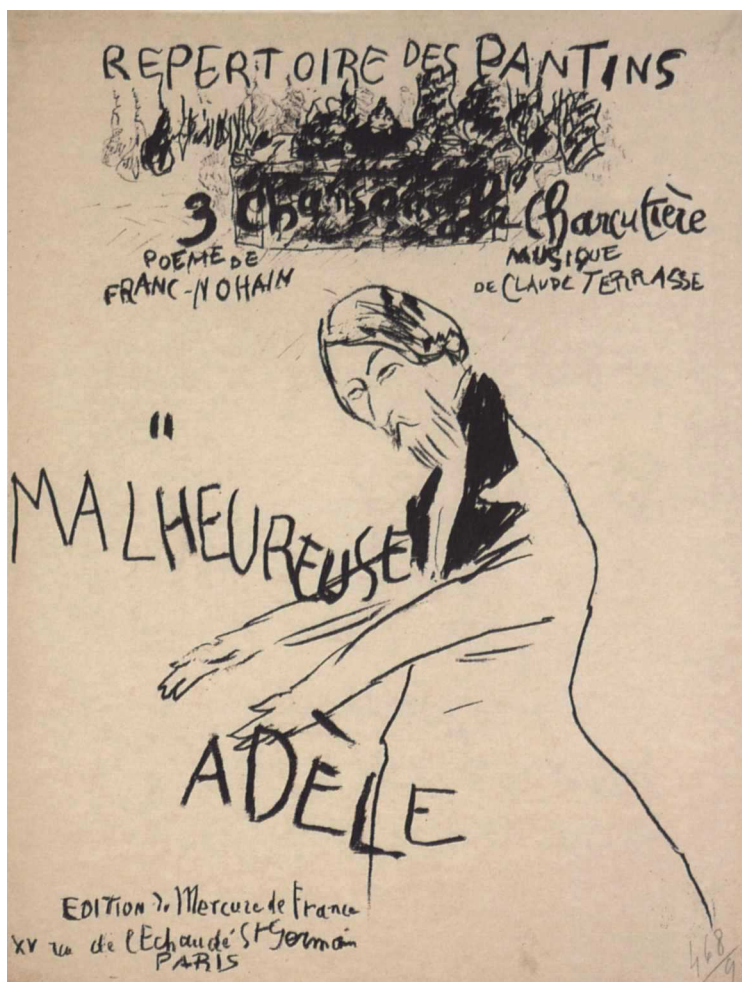 REPERTOIRE DES PANTINS
3 Chansons à la Charcutière
POEME DE
FRANC-NOHAIN
MUSIQUE
DE CLAUDE TERRASSE
"
MALHEUREUSE
ADÈLE
EDITION du Mercure de France
XV rue de l'Echaudé St Germain
PARIS
468
9